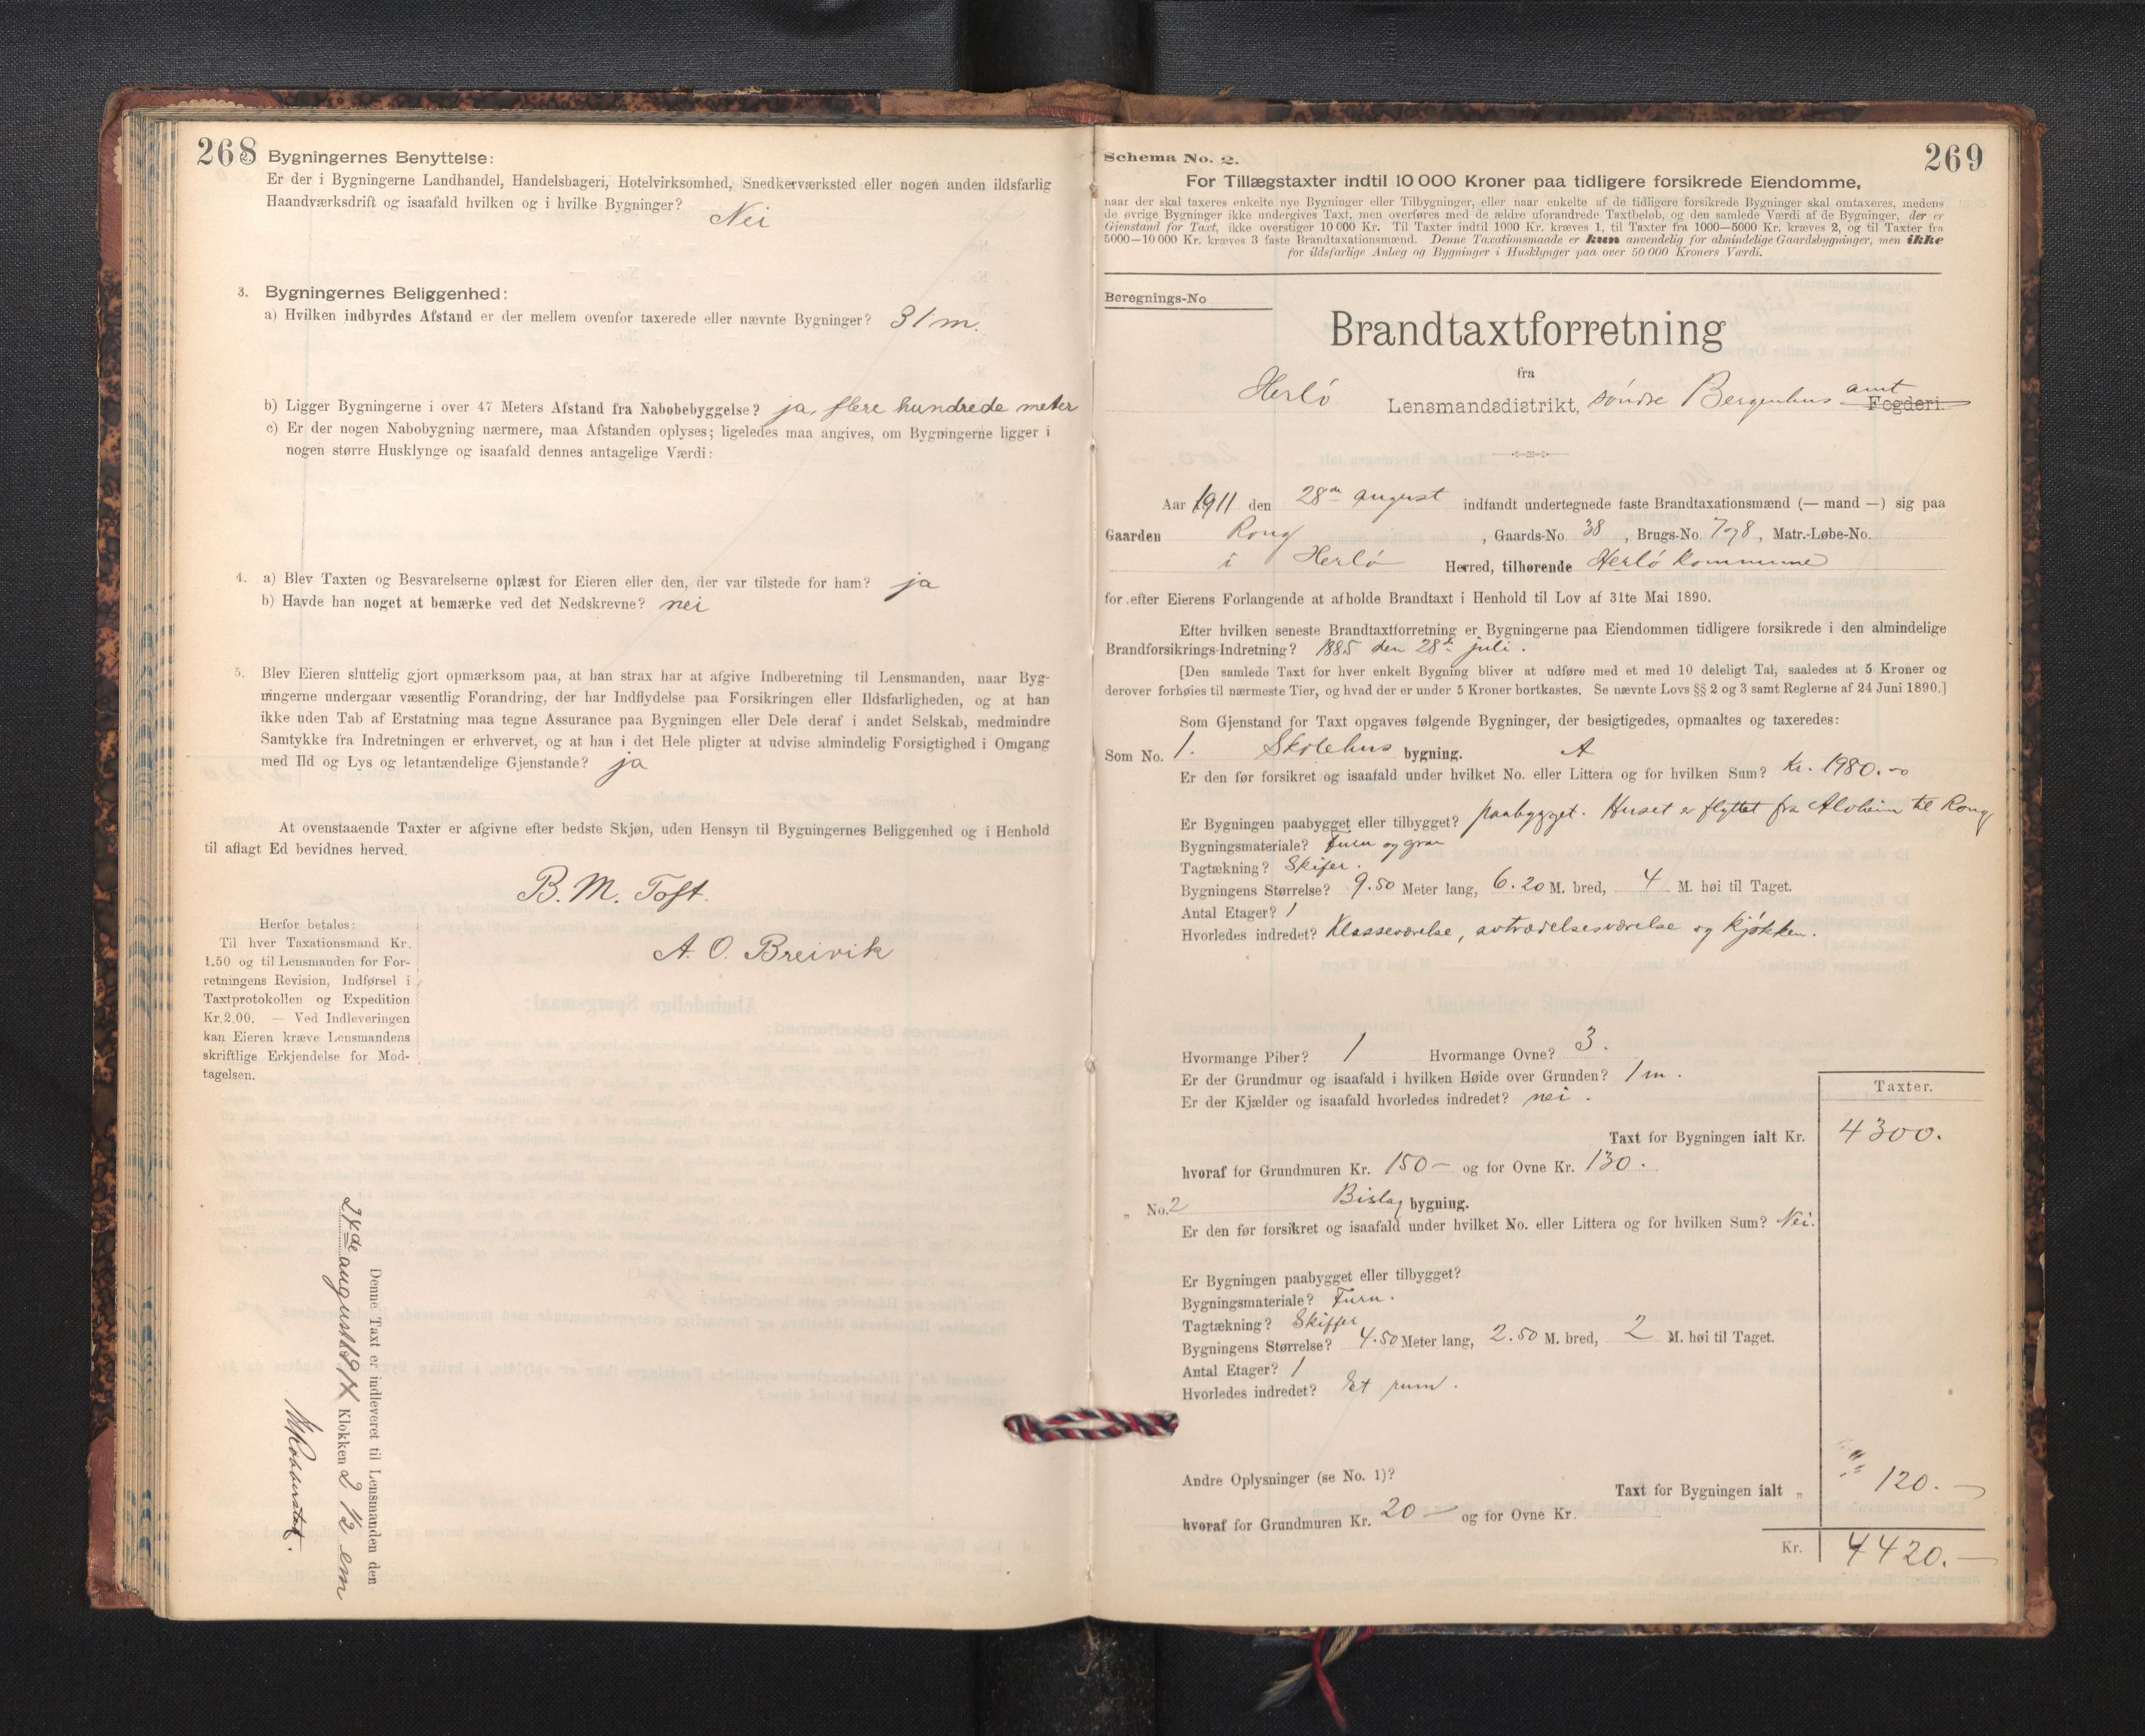 268
2. Bygningernes Benyttelse:
Er der i Bygningerne Landhandel, Handelsbageri, Hotelvirksomhed, Snedkerværksted eller nogen anden ildsfarlig
Haandværksdrift og isaafald hvilken og i hvilke Bygninger? Nei
3. Bygningernes Beliggenhed:
a) Hvilken indbyrdes Afstand er der mellem ovenfor taxerede eller nævnte Bygninger? 31 m.
b) Ligger Bygningerne i over 47 Meters Afstand fra Nabobebyggelse? ja, flere hundrede meter
c) Er der nogen Nabobygning nærmere, maa Afstanden oplyses; ligeledes maa angives, om Bygningerne ligger i
nogen større Husklynge og isaafald dennes antagelige Værdi:
4. a) Blev Taxten og Besvarelserne oplæst for Eieren eller den, der var tilstede for ham? ja
b) Havde han noget at bemærke ved det Nedskrevne? nei
5. Blev Eieren sluttelig gjort opmærksom paa, at han strax har at afgive Indberetning til Lensmanden, naar Byg-
ningerne undergaar væsentlig Forandring, der har Indflydelse paa Forsikringen eller Ildsfarligheden, og at han
ikke uden Tab af Erstatning maa tegne Assurance paa Bygningen eller Dele deraf i andet Selskab, medmindre
Samtykke fra Indretningen er erhvervet, og at han i det Hele pligter at udvise almindelig Forsigtighed i Omgang
med Ild og Lys og letantændelige Gjenstande? ja
At ovenstaaende Taxter er afgivne efter bedste Skjøn, uden Hensyn til Bygningernes Beliggenhed og i Henhold
til aflagt Ed bevidnes herved.
B. M. Toft.
A. O. Breivik
Herfor betales:
Til hver Taxationsmand Kr.
1.50 og til Lensmanden for For-
retningens Revision, Indførsel i
Taxtprotokollen og Expedition
Kr. 2.00. — Ved Indleveringen
kan Eieren kræve Lensmandens
skriftlige Erkjendelse for Mod-
tagelsen.
Denne Taxt er indleveret til Lensmanden den
august Klokken 2 1/2 em
269
Schema No. 2.
For Tillægstaxter indtil 10 000 Kroner paa tidligere forsikrede Eiendomme,
naar der skal taxeres enkelte nye Bygninger eller Tilbygninger, eller naar enkelte af de tidligere forsikrede Bygninger skal omtaxeres, medens
de øvrige Bygninger ikke undergives Taxt, men overføres med de ældre uforandrede Taxtbeløb, og den samlede Værdi af de Bygninger, der er
Gjenstand for Taxt, ikke overstiger 10 000 Kr. Til Taxter indtil 1000 Kr. kræves 1, til Taxter fra 1000—5000 Kr. kræves 2, og til Taxter fra
5000—10 000 Kr. kræves 3 faste Brandtaxationsmænd. Denne Taxationsmaade er kun anvendelig for almindelige Gaardsbygninger, men ikke
for ildsfarlige Anlæg og Bygninger i Husklynger paa over 50 000 Kroners Værdi.
Beregnings-No
Brandtaxtforretning
fra
Herlö Lensmandsdistrikt, söndre Bergenhus amt Fogderi.
Aar 1911 den 28de august indfandt undertegnede faste Brandtaxationsmænd (— mand —) sig paa
Gaarden Rong, Gaards-No. 38, Brugs-No. 7og8, Matr.-Løbe-No.
i Herlö Herred, tilhørende Herlö kommune
for efter Eierens Forlangende at afholde Brandtaxt i Henhold til Lov af 31te Mai 1890.
Efter hvilken seneste Brandtaxtforretning er Bygningerne paa Eiendommen tidligere forsikrede i den almindelige
Brandforsikrings-Indretning? 1885 den 28de juli.
[Den samlede Taxt for hver enkelt Bygning bliver at udføre med et med 10 deleligt Tal, saaledes at 5 Kroner og
derover forhøies til nærmeste Tier, og hvad der er under 5 Kroner bortkastes. Se nævnte Lovs §§ 2 og 3 samt Reglerne af 24 Juni 1890.]
Som Gjenstand for Taxt opgaves følgende Bygninger, der besigtigedes, opmaaltes og taxeredes:
Som No. 1. Skolehus bygning. A
Er den før forsikret og isaafald under hvilket No. eller Littera og for hvilken Sum? Kr. 1980.
Er Bygningen paabygget eller tilbygget? paabygget. Huset er flyttet fra Alvheim til Rong
Bygningsmateriale? Furu og gran
Tagtækning? Skifer.
Bygningens Størrelse? 9.50 Meter lang, 6.20 M. bred, 4 M. høi til Taget.
Antal Etager? 1
Hvorledes indredet? Klasseværelse, avtrædelsesværelse og kjökken.
Hvormange Piber? 1 Hvormange Ovne? 3.
Er der Grundmur og isaafald i hvilken Høide over Grunden? 1 m.
Er der Kjælder og isaafald hvorledes indredet? nei.
Taxter.
Taxt for Bygningen ialt Kr. 4300.
hvoraf for Grundmuren Kr. 150 – og for Ovne Kr. 130.
„ No. 2 Bislag bygning.
Er den før forsikret og isaafald under hvilket No. eller Littera og for hvilken Sum? Nei.
Er Bygningen paabygget eller tilbygget?
Bygningsmateriale? Furu.
Tagtækning? Skiffer
Bygningens Størrelse? 4.50 Meter lang, 2.50 M. bred, 2 M. høi til Taget.
Antal Etager? 1
Hvorledes indredet? Et rum.
Andre Oplysninger (se No. 1)?
Taxt for Bygningen ialt „ 120. –
hvoraf for Grundmuren Kr. 20 – og for Ovne Kr.
Kr. 4420. –